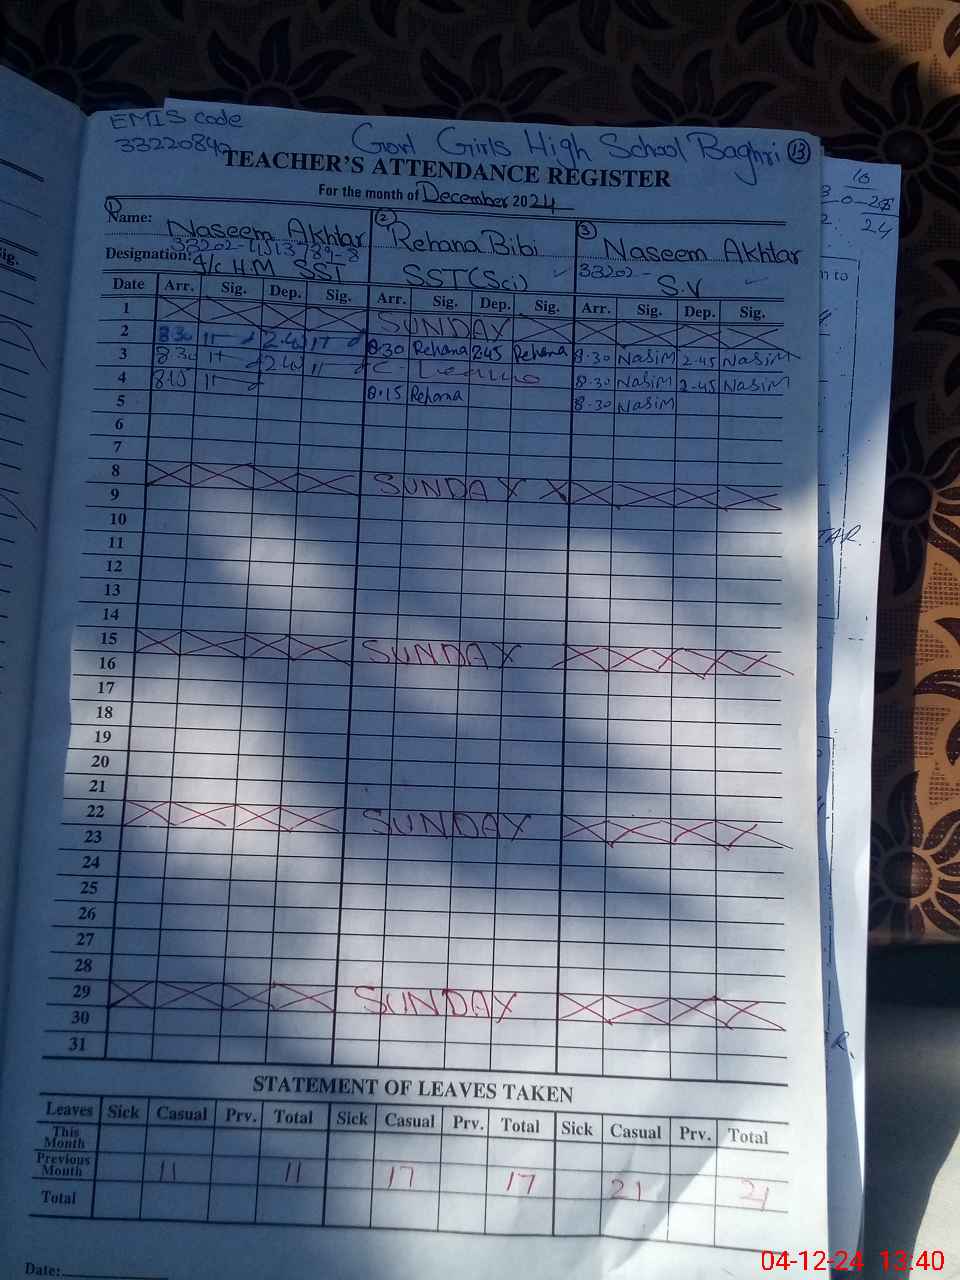 EMIS code
33220840
Govt Girls High School Baghri 13
TEACHER'S ATTENDANCE REGISTER
For the month of December 2024
1 Name: Naseem Akhtar 2 Rehana Bibi 3 Naseem Akhtar
Designation: A/c H.M SST SST (Sci) 33202- S.V
Date Arr. Sig. Dep. Sig. Arr. Sig. Dep. Sig. Arr. Sig. Dep. Sig.
1 SUNDAY
2 8:30 2.40 8.30 Rehana 2.45 Rehana 8.30 NasiM 2.45 NasiM
3 8.30 2.40 C. 8.30 NasiM 2.45 NasiM
4 8.15 8.15 Rehana 8.30 NasiM
5
6
7
8 SUNDAY
9
10
11
12
13
14
15 SUNDAY
16
17
18
19
20
21
22 SUNDAY
23
24
25
26
27
28
29 SUNDAY
30
31
STATEMENT OF LEAVES TAKEN
Leaves Sick Casual Prv. Total Sick Casual Prv. Total Sick Casual Prv. Total
This Month
Previous Month 11 11 17 17 21 21
Total
Date:
04-12-24 13:40